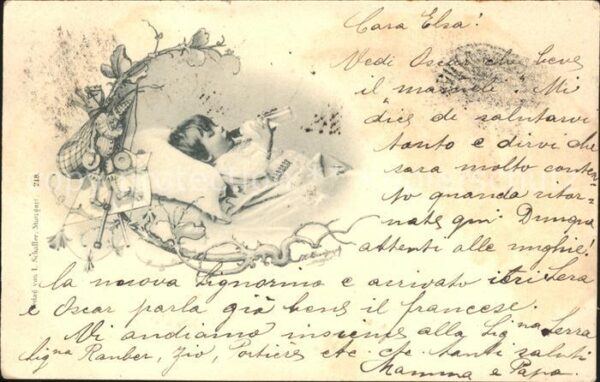 Cara Elsa!
Vedi Oscar che beve
il Mi
dice di salutarvi
tanto e dirvi che
sara molto conten-
to quando ritor-
nate qui Dunque
attenti alle unghie!
la nuova Signorina e arrivato ieri sera
e Oscar parla già bene il francese.
Vi andiamo insieme alla Sig.na Serra
Sig.na Rauber, Zio, etc. etc. tanti saluti
Mamma e Papa.
218.